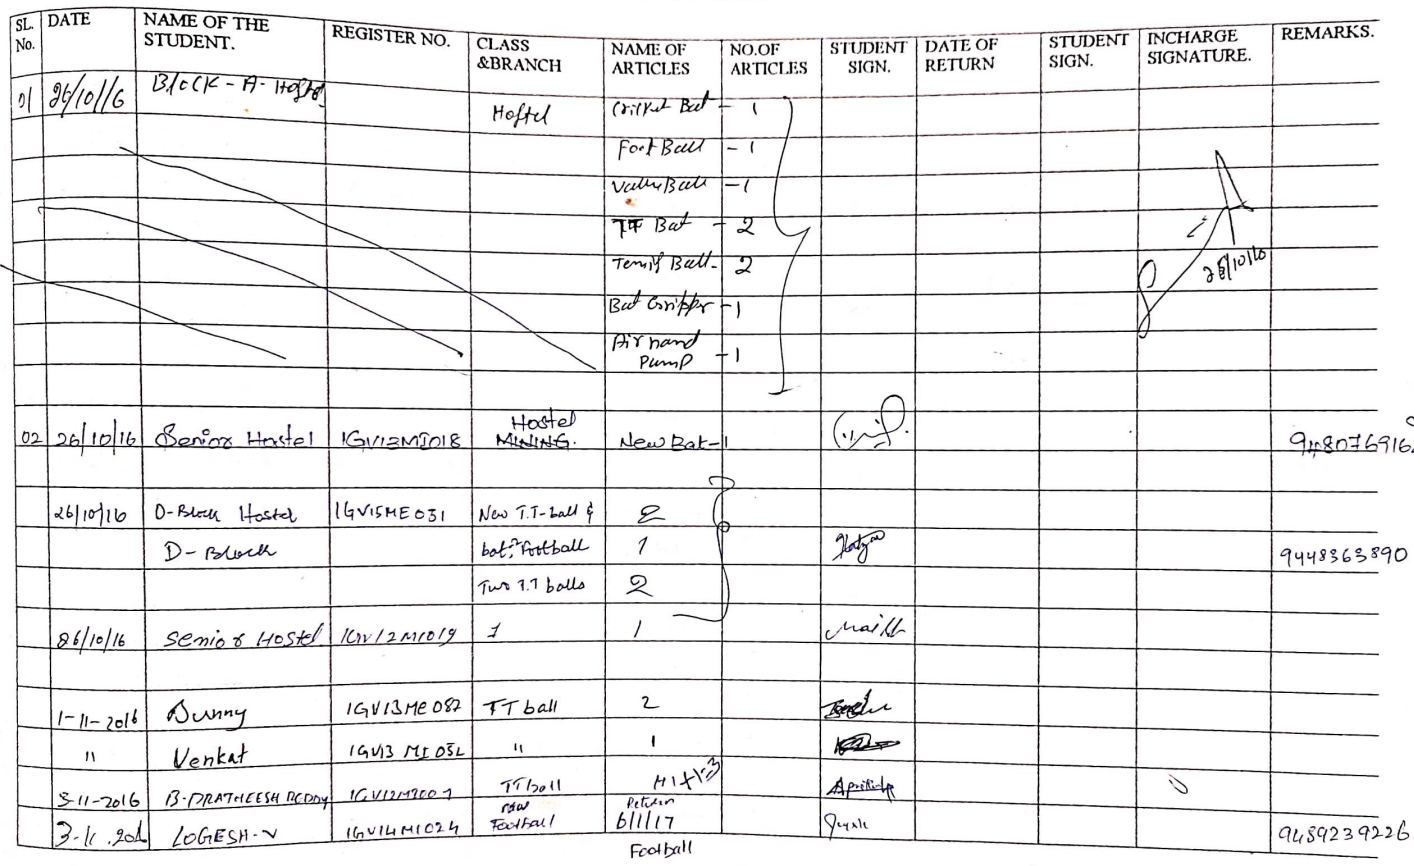 SL. No. DATE NAME OF THE STUDENT. REGISTER NO. CLASS &BRANCH NAME OF ARTICLES NO.OF ARTICLES STUDENT SIGN. DATE OF RETURN STUDENT SIGN. INCHARGE SIGNATURE. REMARKS.
01 26/10/16 Block-A-Hostel Hostel Cricket Bat - 1
Foot Ball - 1
Volley Ball - 1
TT Bat - 2
Tennis Ball - 2
26/10/16
Bat Gripper - 1
Air hand Pump - 1
02 26/10/16 Senior Hostel 1GV13MI018 Hostel MINING. New Bat-1 948076916
26/10/16 D-Block Hostel 1GV15ME031 New T.T-ball & 2
D-Block bat, Football 1 9448363890
Two T.T balls 2
26/10/16 Senior Hostel 1GV12MI019 1 1
1-11-2016 Sunny 1GV13ME082 TT ball 2
" Venkat 1GV13 MI 032 " 1
3-11-2016 B. PRATHEESH REDDY TT ball
3-11-2016 LOGESH-V 1GV14MI024 Football Return 6/1/17 9489239226
Football